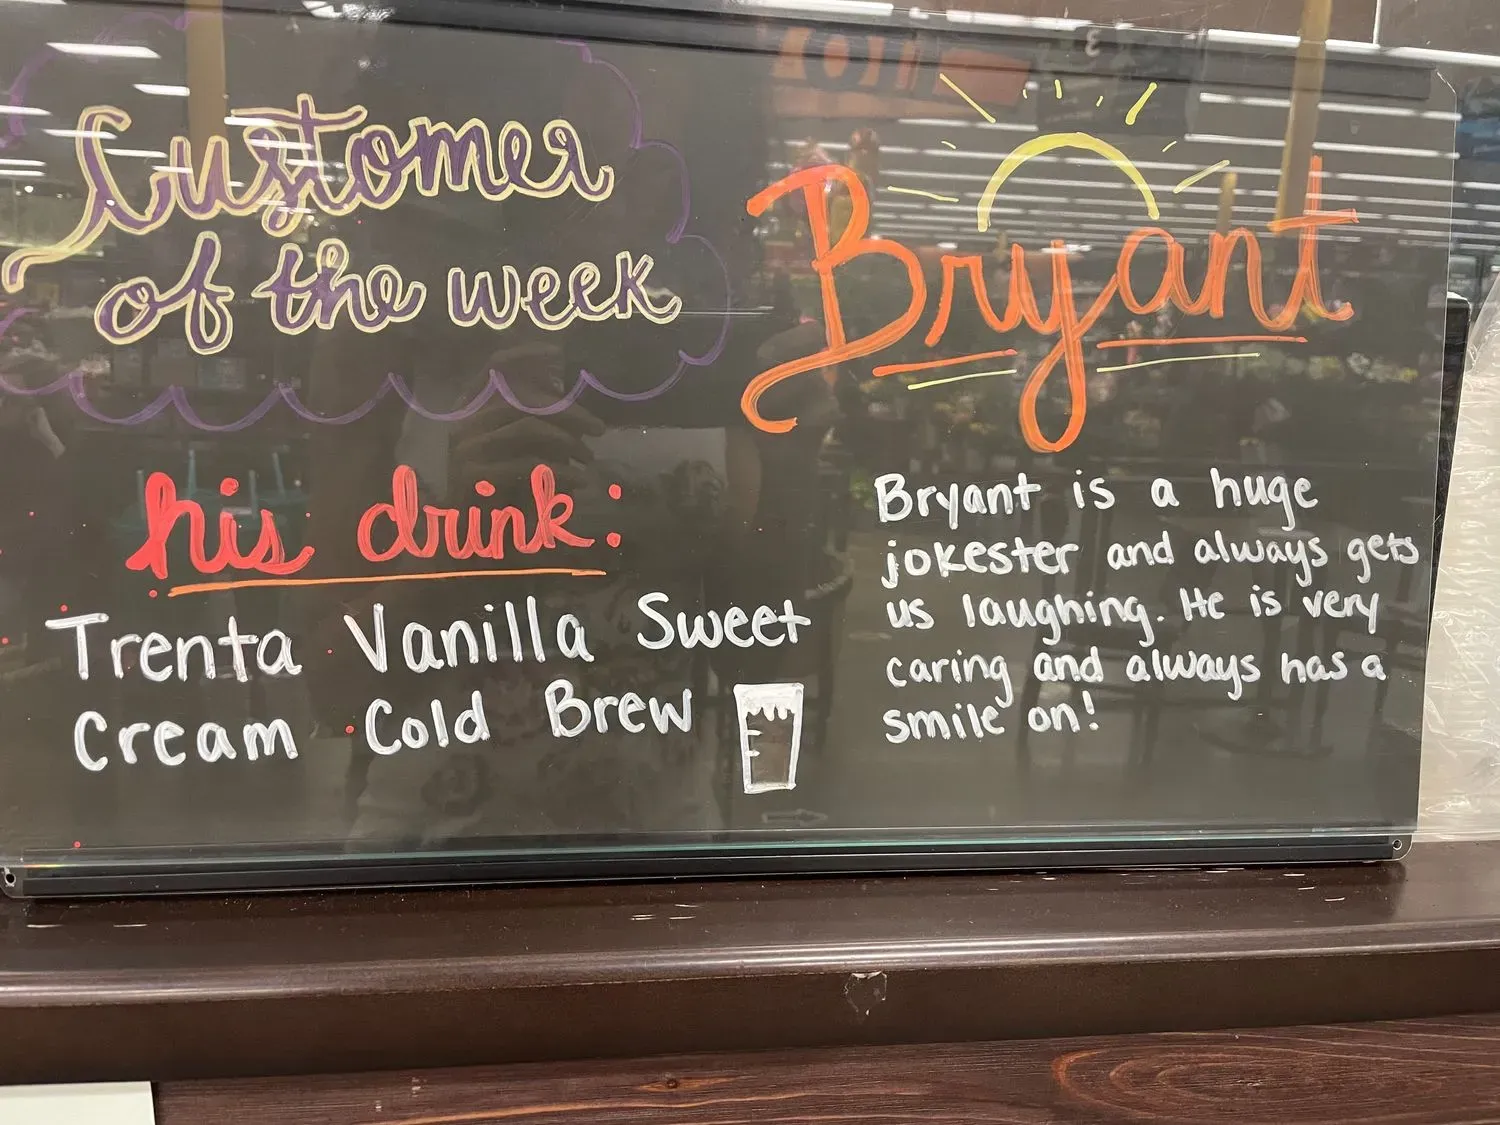 Customer
of the week
his drink:
Trenta Vanilla Sweet
Cream Cold Brew
Bryant
Bryant is a huge
jokester and always gets
us laughing. He is very
caring and always has a
smile on!